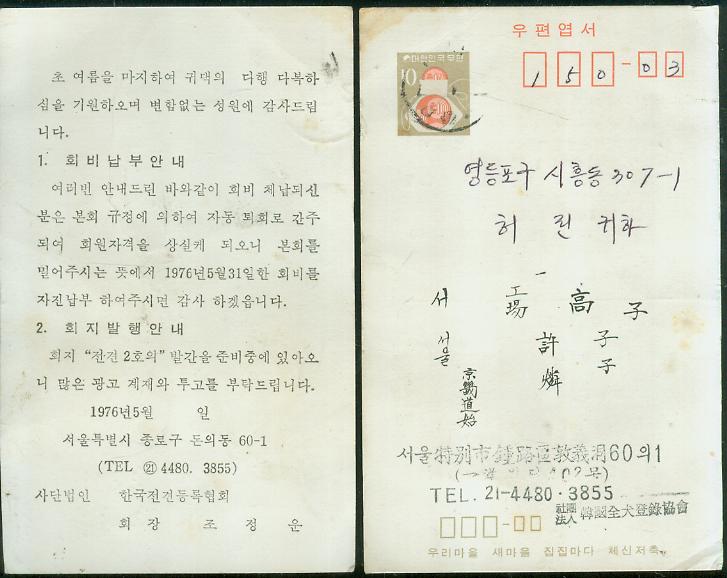 초 여름을 마지하여 귀댁의 다행 다복하
심을 기원하오며 변함없는 성원에 감사드립
니다.
1. 회비납부안내
여러번 안내드린 바와같이 회비 체납되신
분은 본회 규정에 의하여 자동 퇴회로 간주
되여 회원자격을 상실케 되오니 본회를
믿어주시는 뜻에서 1976년5월31일한 회비를
자진납부 하여주시면 감사 하겠읍니다.
2. 회지발행안내
회지 "전견 2호의" 발간을 준비중에 있아오
니 많은 광고 게재와 투고를 부탁드립니다.
1976년5월 일
서울특별시 종로구 돈의동 60-1
(TEL ㉑ 4480. 3855)
사단법인 한국전견등록협회
회장 조정운
우편엽서
대한민국우편
10
150-03
영등포구 시흥동 307-1
허 린 귀하
서 高 子
서울 許 子
燐 子
京畿道始
서울特別市鍾路區敦義洞60의1
TEL. 21-4480·3855
社團法人 韓國全犬登錄協會
우리마을 새마을 집집마다 체신저축